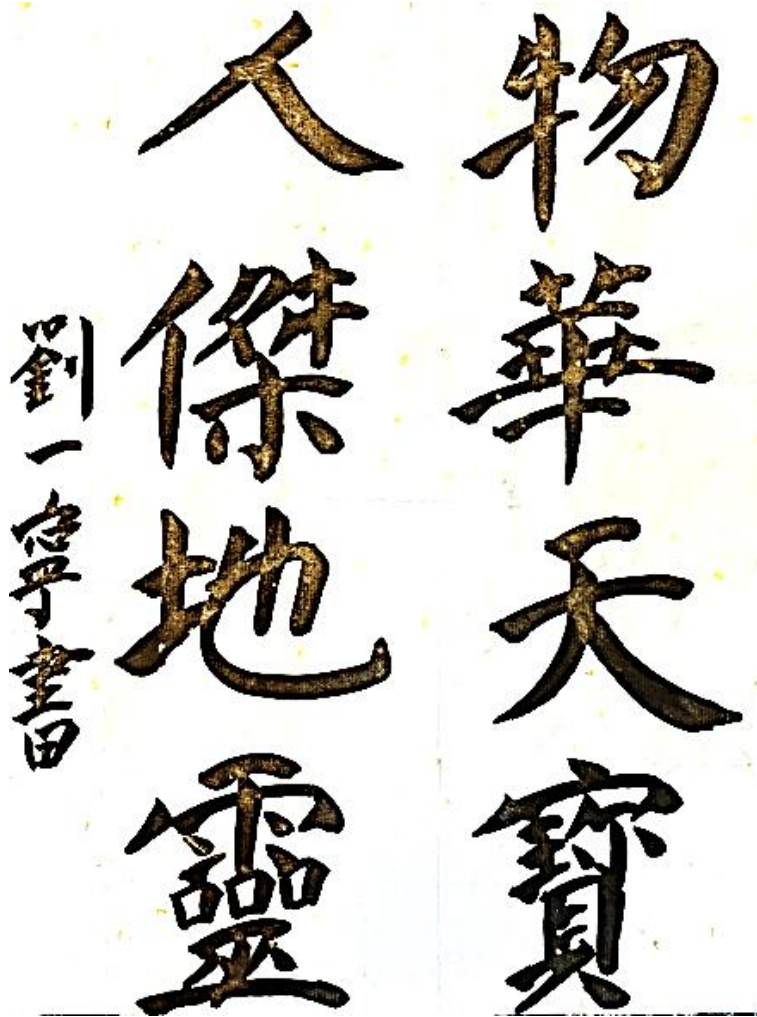 物華天寶
人傑地靈
劉一寧書